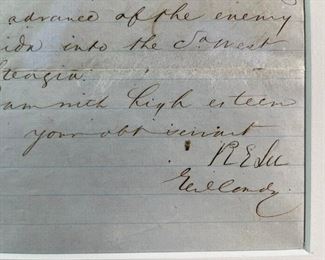 advance of the enemy
ida into the So West
Georgia
am with high esteem
your obt servant
R E Lee
Genl Comdg